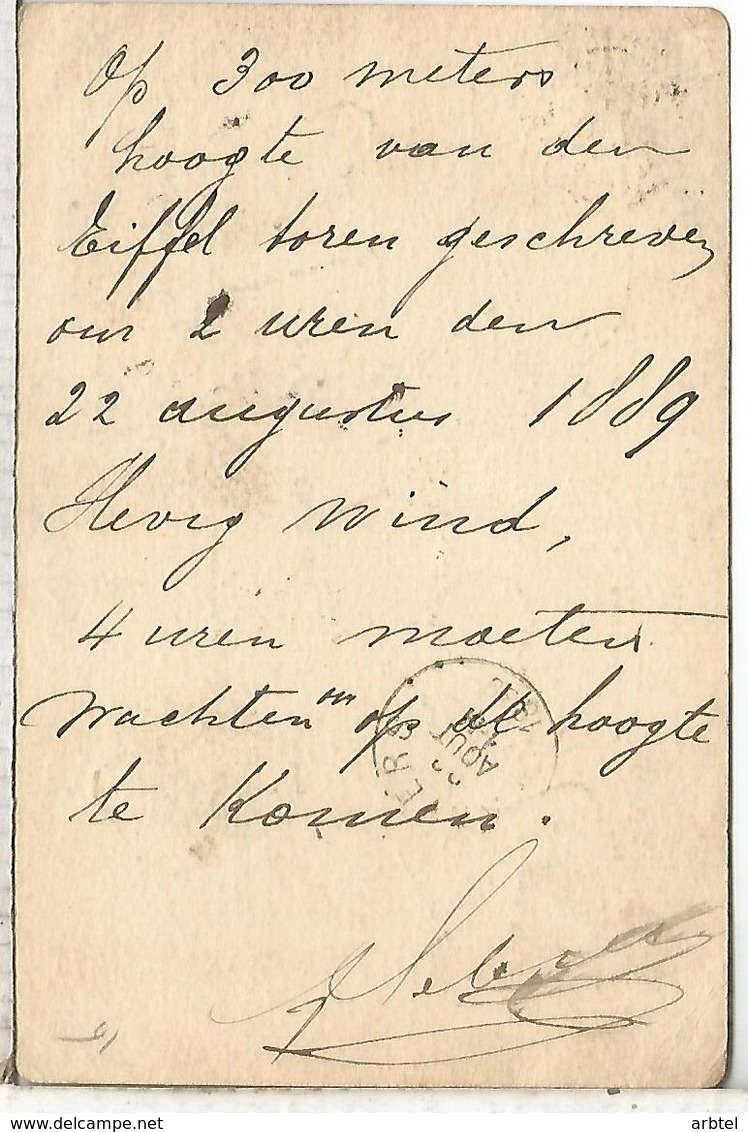 Op 300 meters
hoogte van den
Eiffel toren geschreven
om 2 uren den
22 augustus 1889
Hevig wind,
4 uren moeten
wachten om op de hoogte
te komen.
22
AOUT
delcampe.net
arbtel